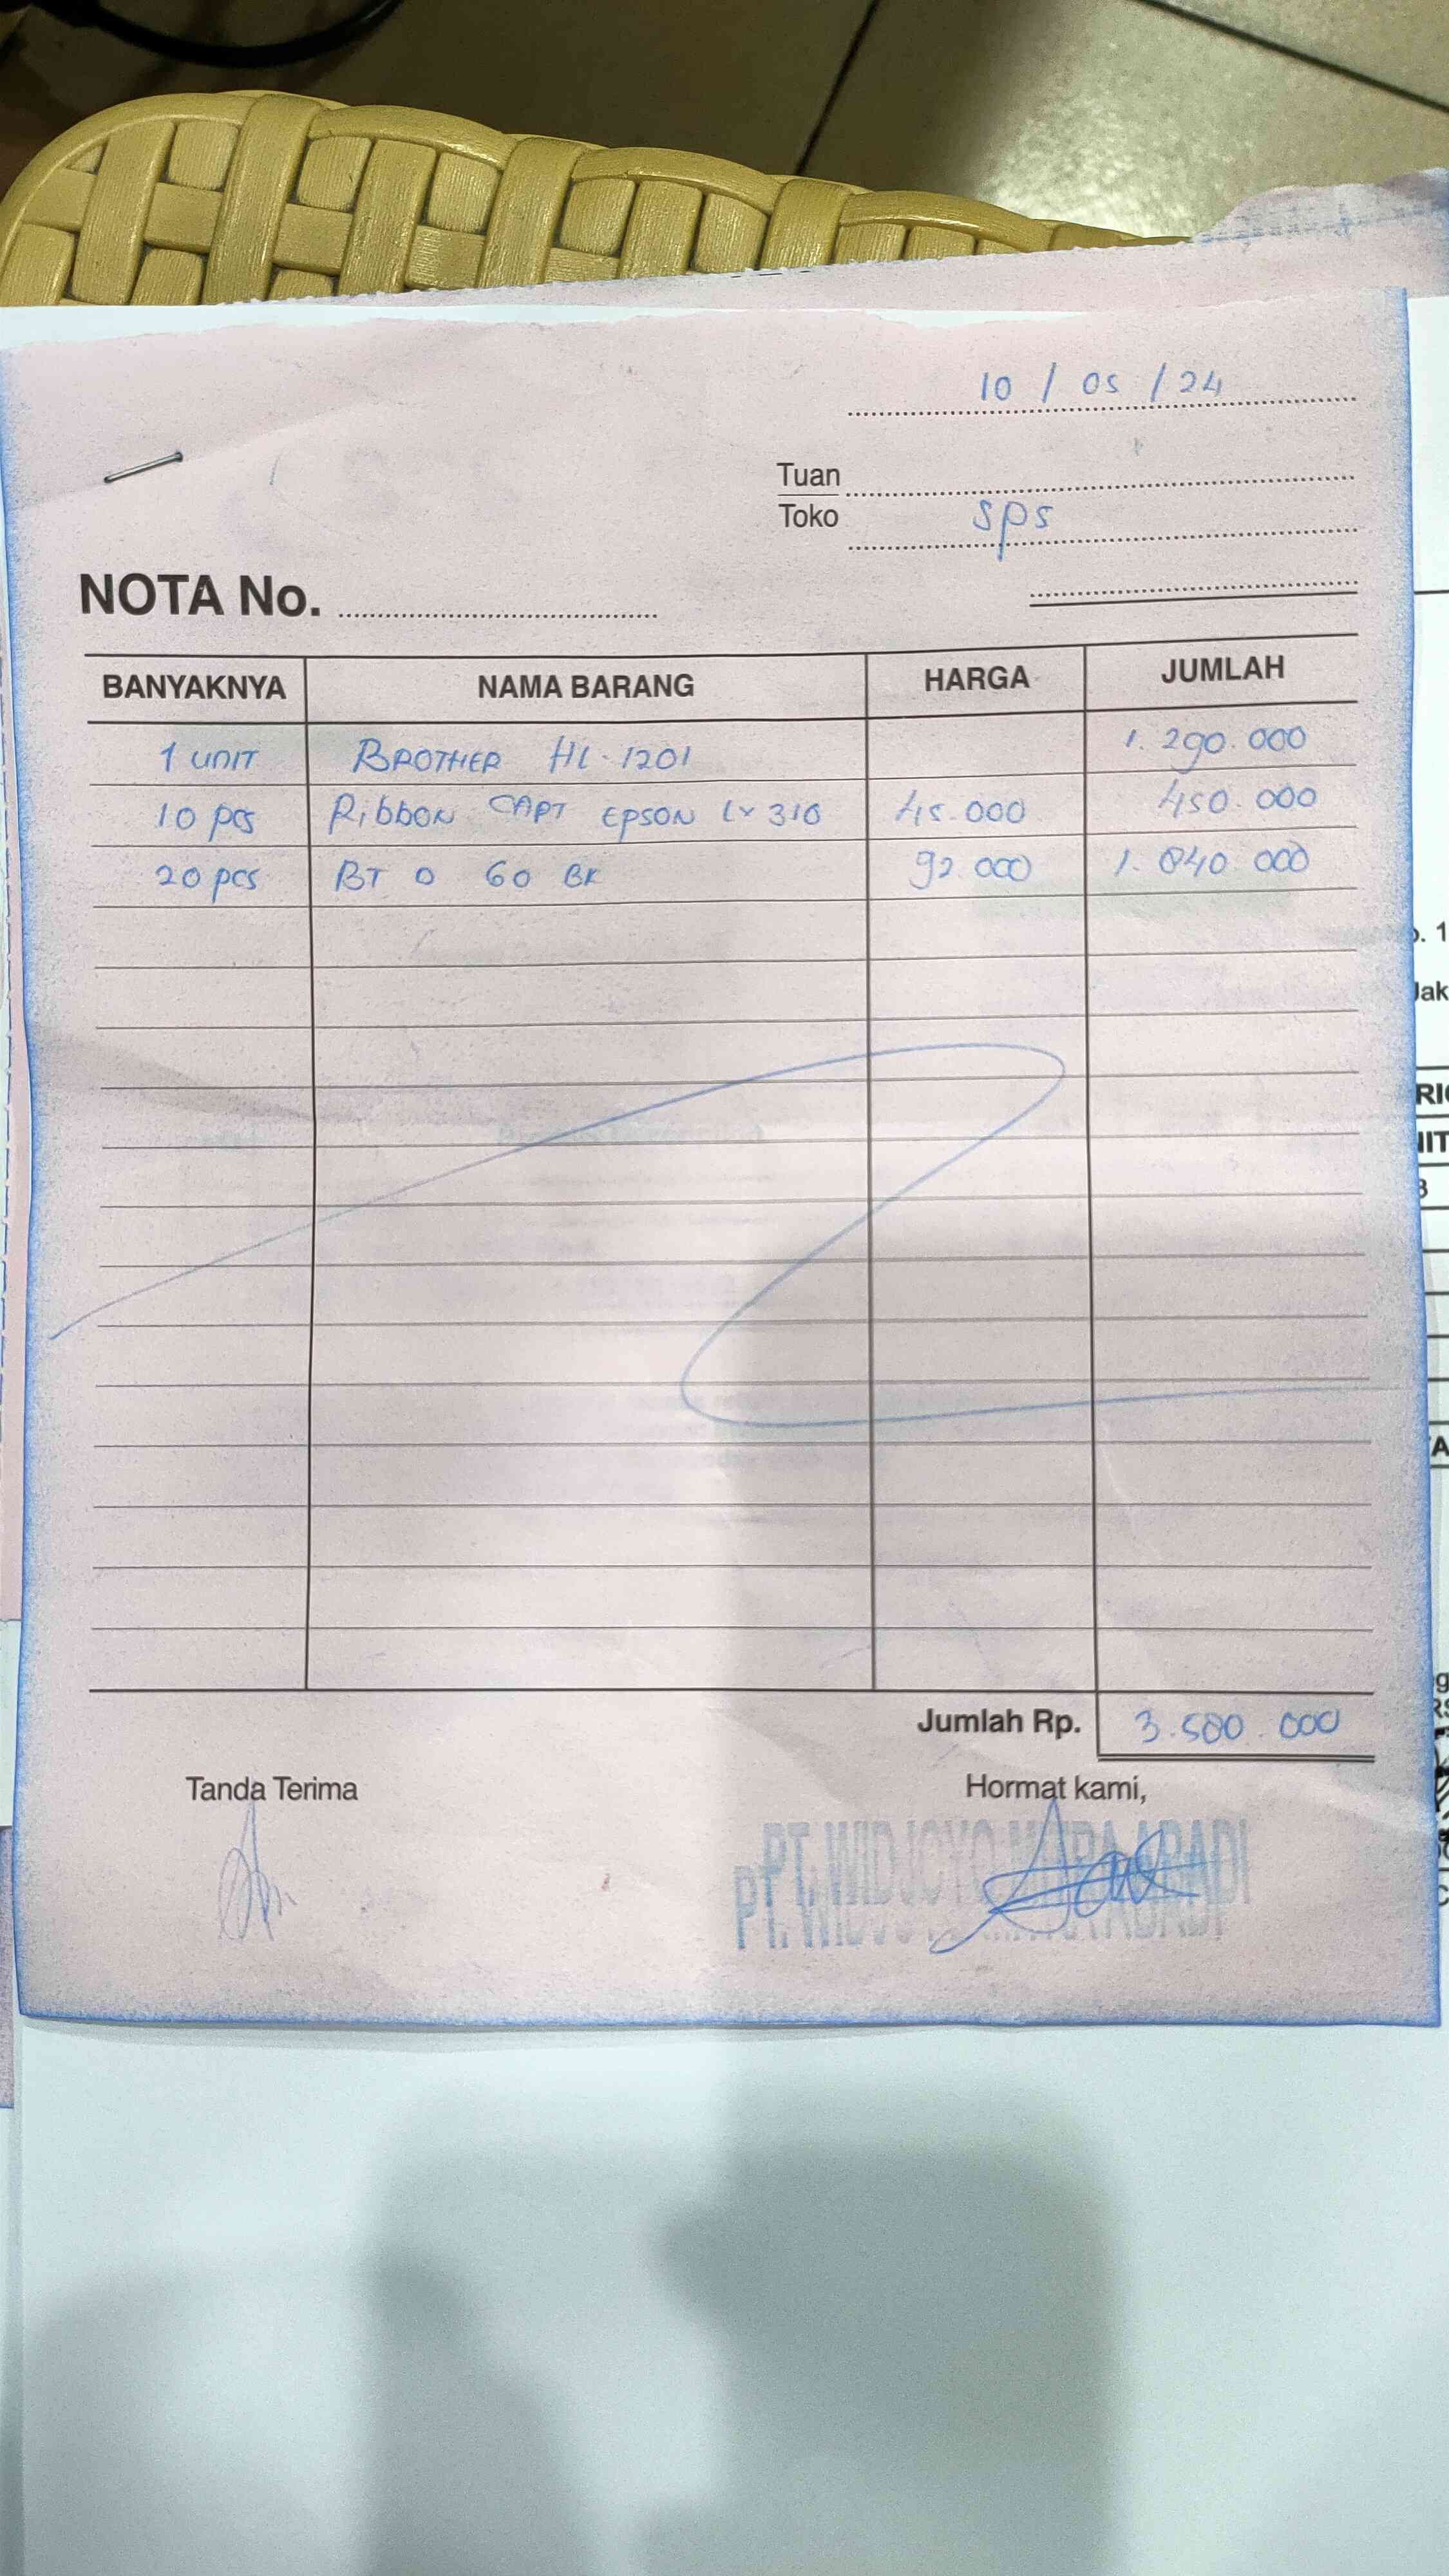 10 / 05 / 24
Tuan
Toko sps
NOTA No.
BANYAKNYA NAMA BARANG HARGA JUMLAH
1 UNIT BROTHER HL-1201 1.290.000
10 pcs Ribbon CAPT EPSON LX 310 45.000 450.000
20 pcs BT D 60 BK 92.000 1.840.000
Jumlah Rp. 3.580.000
Tanda Terima Hormat kami,
PT. WIDJOYO ABADI